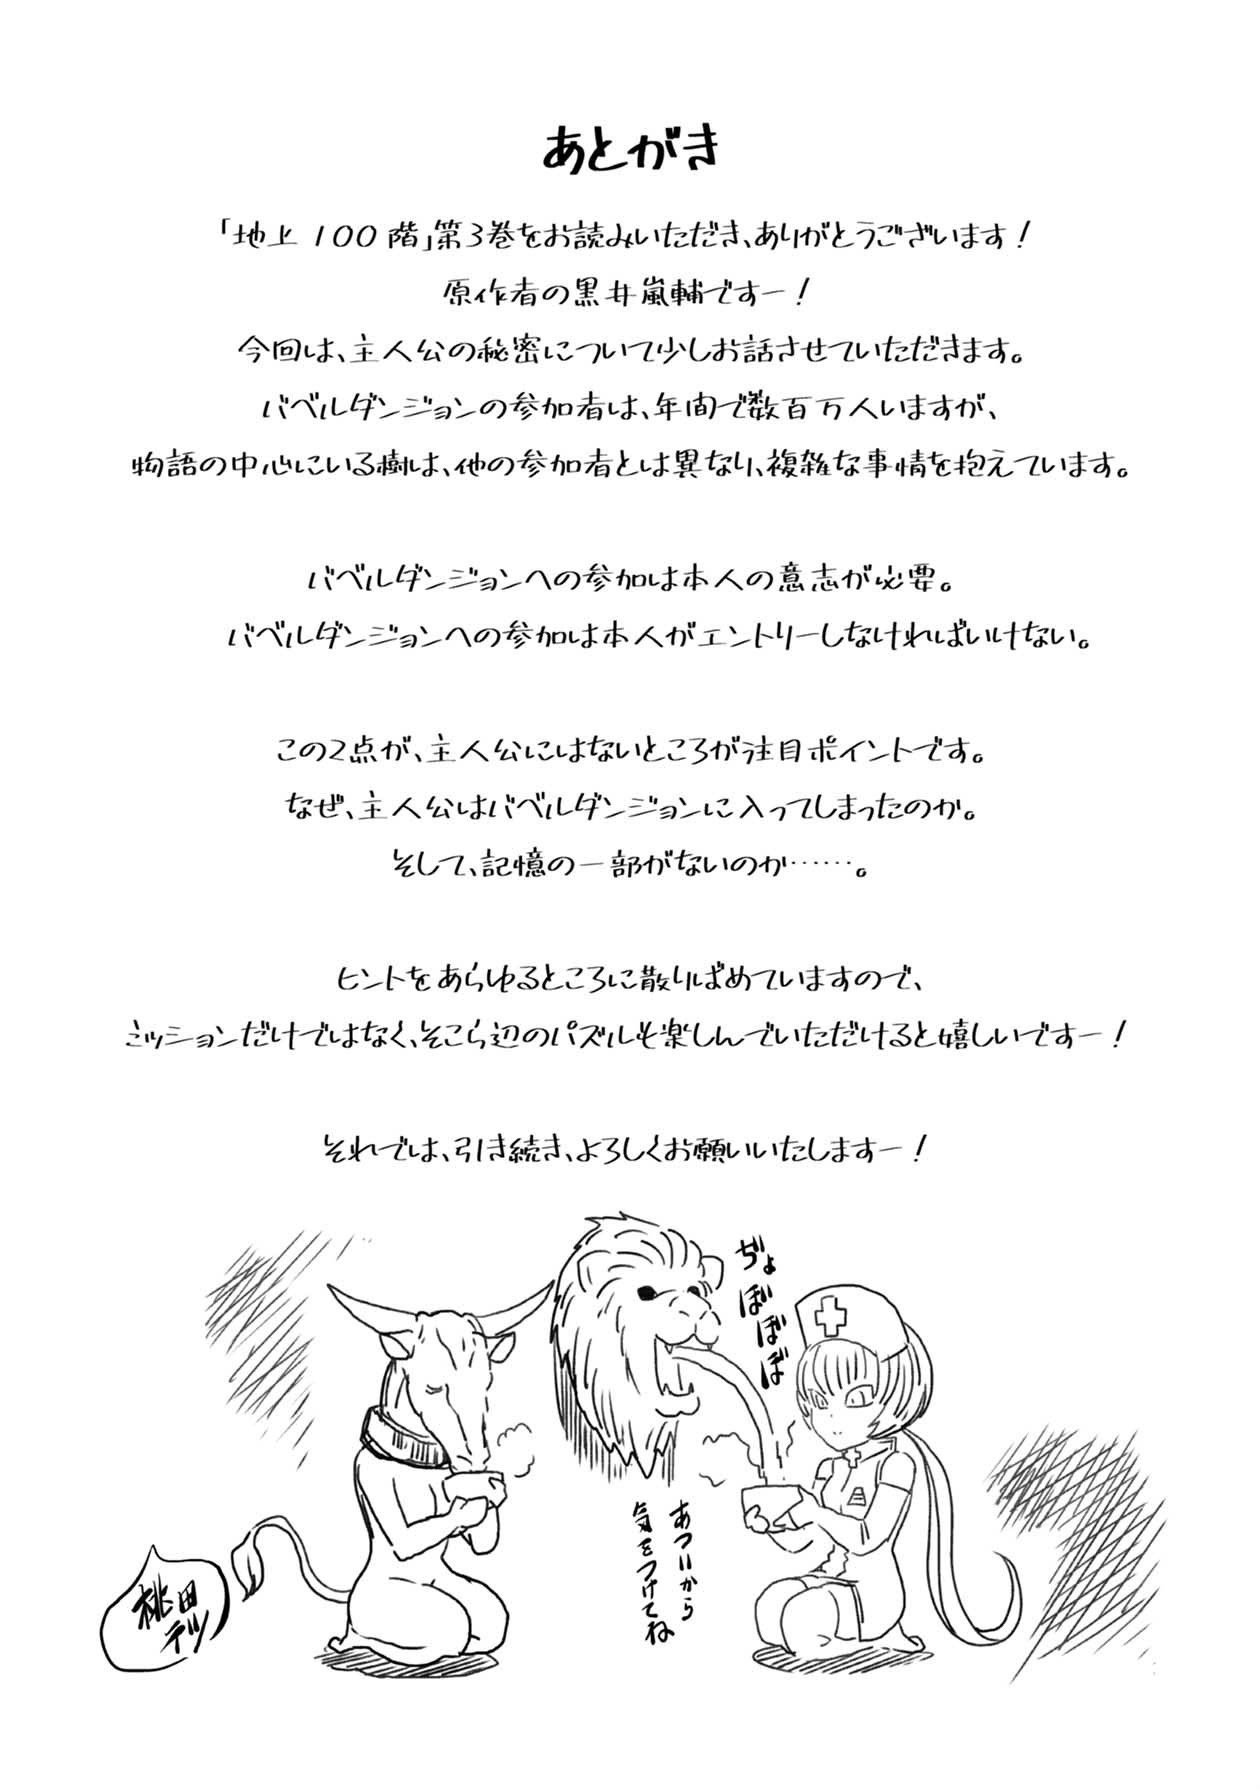 あとがき
「地上100階」第3巻をお読みいただき、ありがとうございます！
原作者の黒井嵐輔ですー！
今回は、主人公の秘密について少しお話させていただきます。
バベルダンジョンの参加者は、年間で数百万人いますが、
物語の中心にいる樹は、他の参加者とは異なり、複雑な事情を抱えています。
バベルダンジョンへの参加は本人の意志が必要。
バベルダンジョンへの参加は本人がエントリーしなければいけない。
この2点が、主人公にはないところが注目ポイントです。
なぜ、主人公はバベルダンジョンに入ってしまったのか。
そして、記憶の一部がないのか……。
ヒントをあらゆるところに散りばめていますので、
ミッションだけではなく、そこら辺のパズルも楽しんでいただけると嬉しいですー！
それでは、引き続き、よろしくお願いいたしますー！
ぢょ
ぼぼぼ
あついから
気をつけてね
桃田
テツ